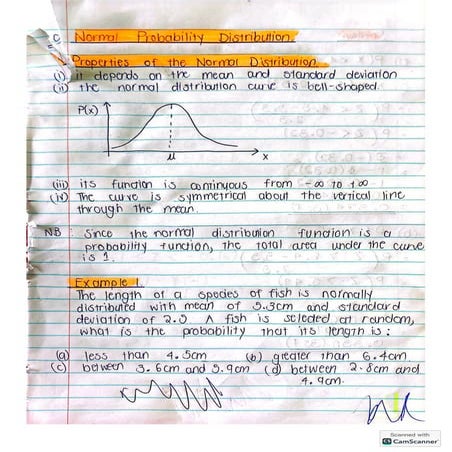 c) Normal Probability Distribution.
Properties of the Normal Distribution
(i) it depends on the mean and standard deviation
(ii) the normal distribution curve is bell-shaped.
P(x)
μ
x
(iii) its function is continuous from -∞ to +∞
(iv) The curve is symmetrical about the vertical line
through the mean.
NB: Since the normal distribution function is a
probability function, the total area under the curve
is 1.
Example 1.
The length of a species of fish is normally
distributed with mean of 5.3cm and standard
deviation of 2.2 A fish is selected at random,
what is the probability that its length is:
(a) less than 4.5cm (b) greater than 6.4cm.
(c) between 3.6cm and 5.9cm (d) between 2.8cm and
4.9cm.
Scanned with
CS CamScanner